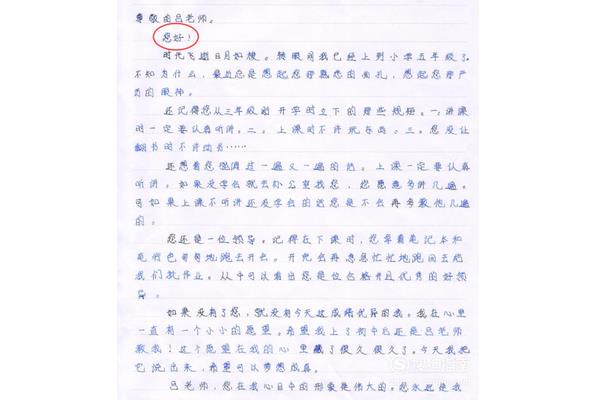 尊敬的吕老师。
您好！
时代飞逝日月如梭。转眼间我已经上到小学五年级了。
不知为什么，最近总是想起您那熟悉的面孔，想起您那严
厉的眼神。
还记得您从三年级刚开学时立下的那些规矩。一：讲课
时一定要认真听讲。二。上课时不许玩东西。三。您没让
翻书时不许翻书……
还想着您强调过一遍又一遍的话。上课一定要认真
听讲。如果没学会就去办公室找您，您愿意多讲几遍。
可如果上课不听讲还没学会的话您是不会再多教他几遍
的。
您还是一位领导。记得在下课时，您拿着笔记本和
笔匆匆地跑去开会。开完会再急急忙忙地跑回去给
我们教作业。从中可以看出您是位负责并且优秀的好领
导。
如果没有了您，就没有今天这成绩优异的我。我在心里
一直有一个小小的愿望。希望我上了初中后还是吕老师
教我！这个愿望在我的心里藏了很久很久了。今天我把
它说出来，希望可以梦想成真。
吕老师，您在我心目中的形象是伟大的。您永远是我